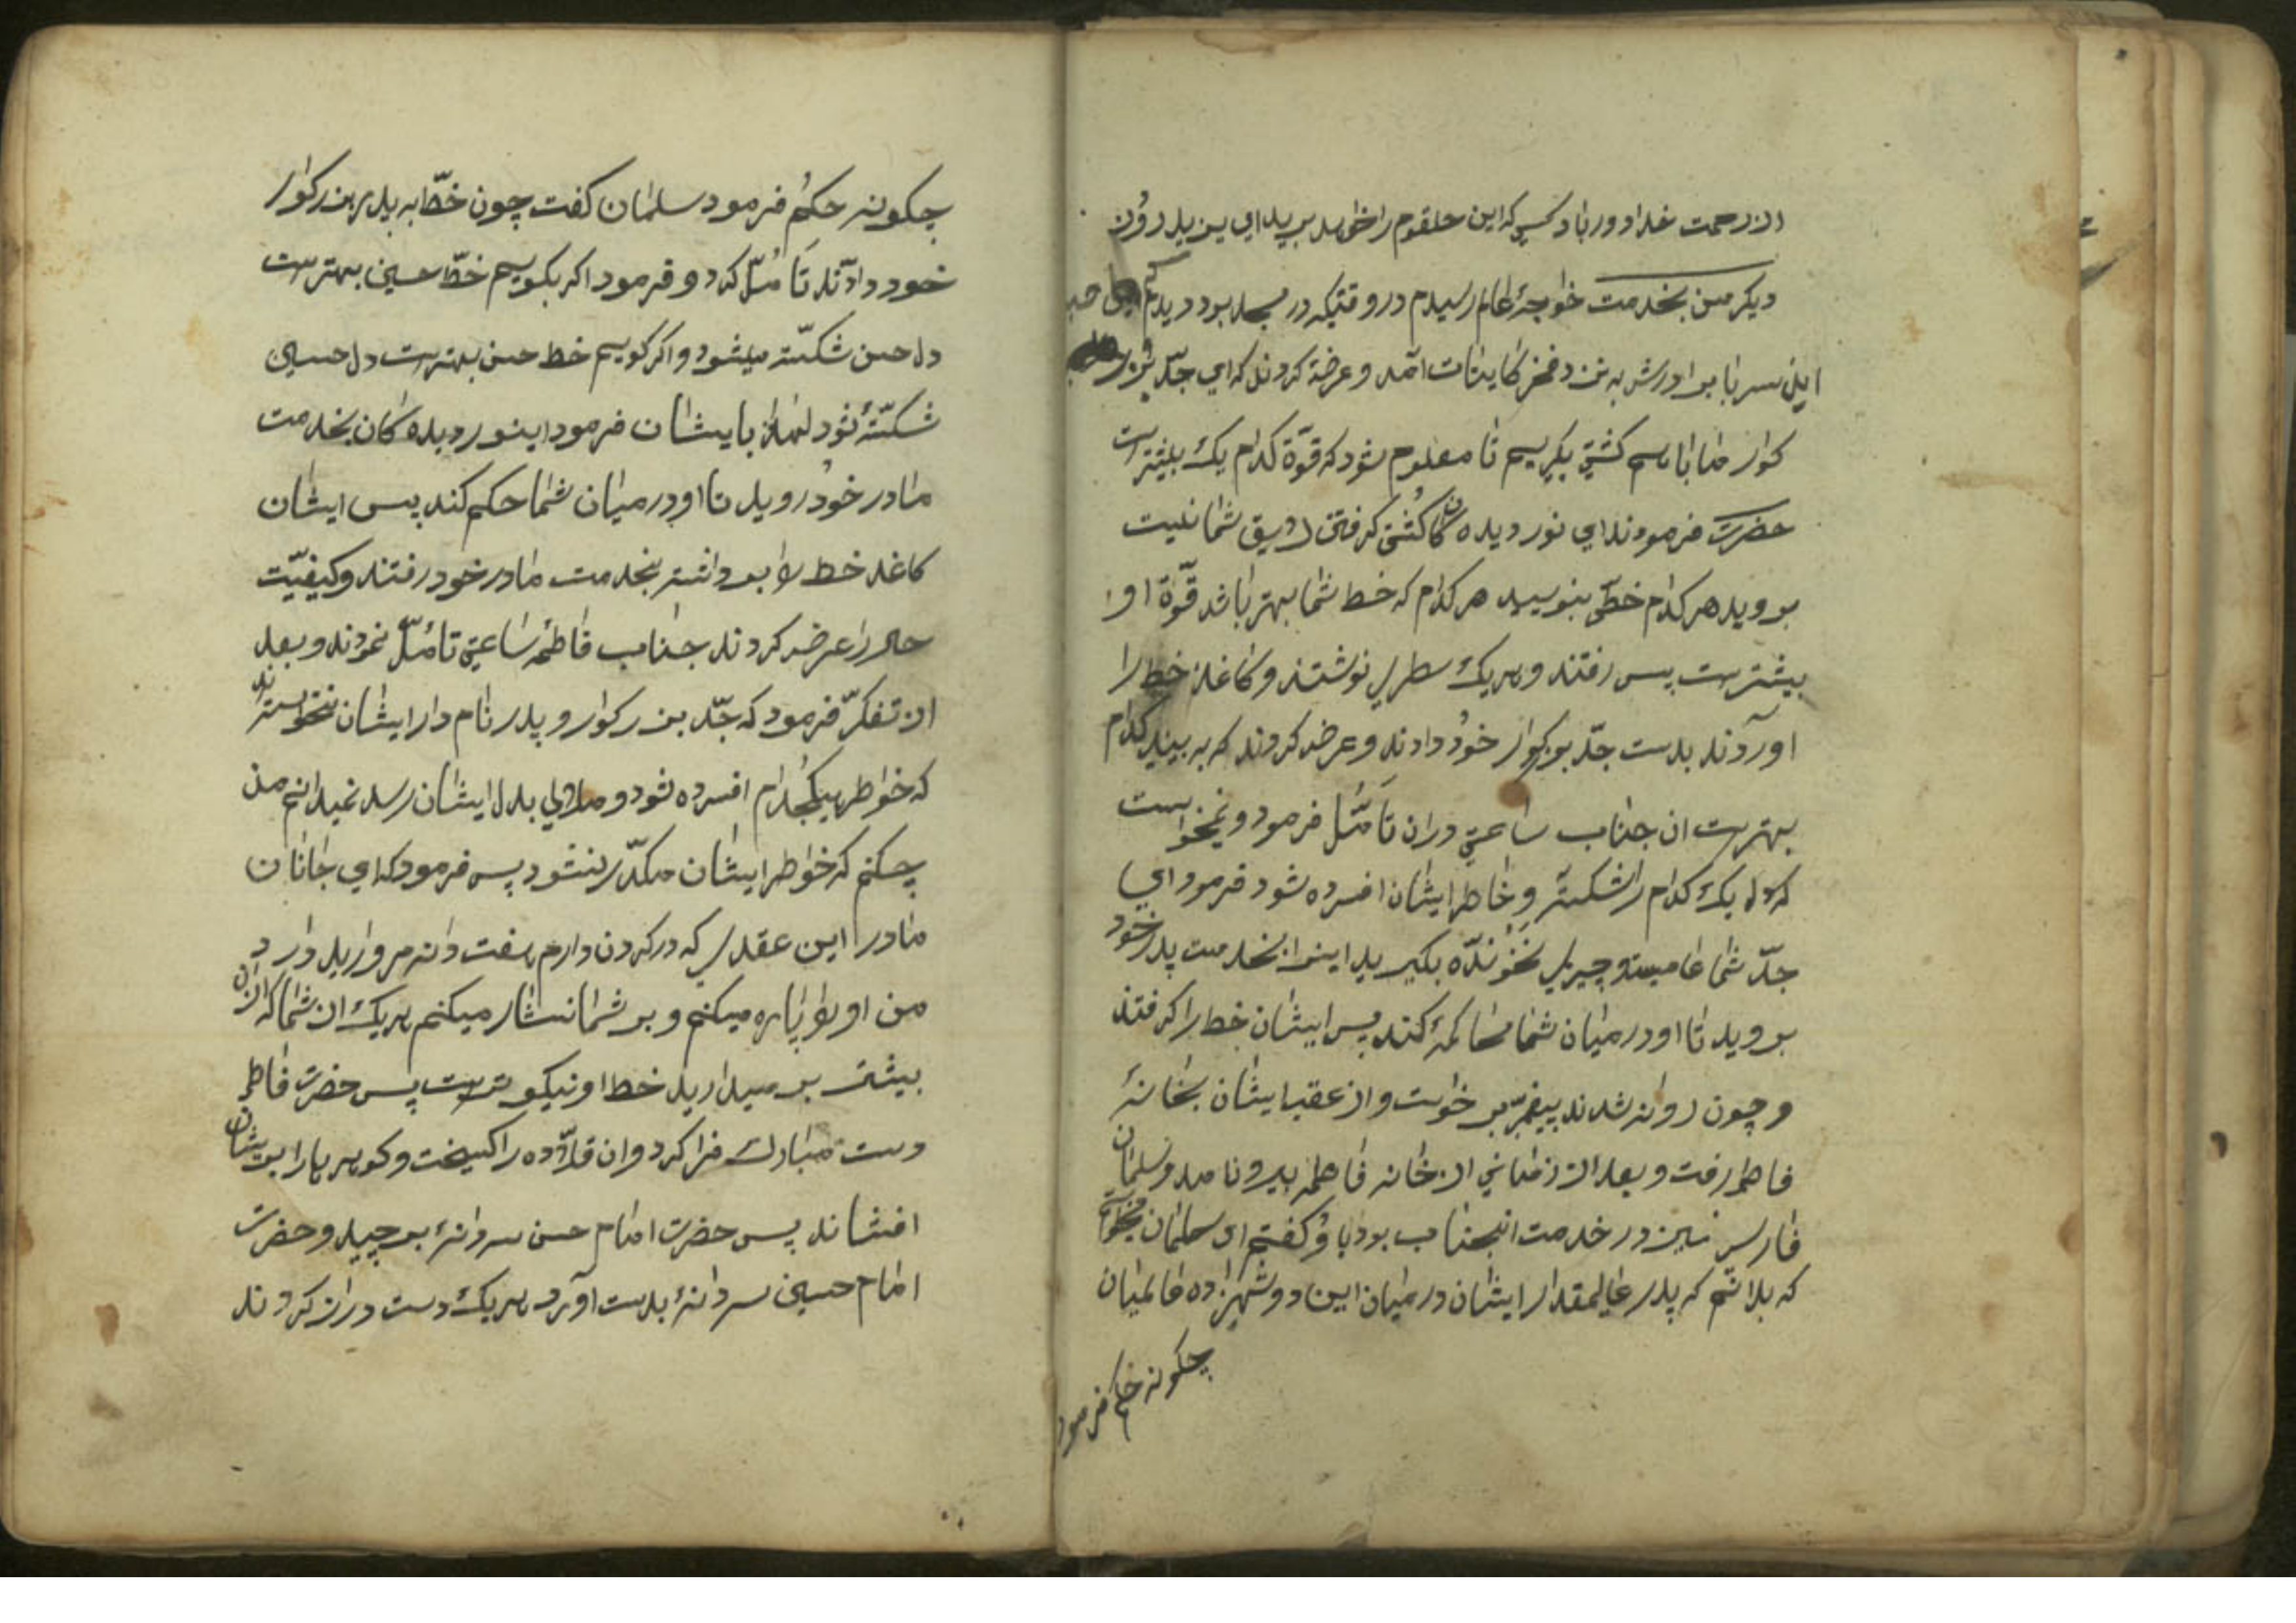 از رحمت خدا دور باد کسی که این حلقوم را خواهد برید ای یزید روزی
دیکر من بخدمت خواجهٔ عالم رسیدم در وقتیکه در مسجد بود دیدم که
این سر با برادرش به نزد فخر کاینات آمد و عرضه کردند که ای جدّ بزر
کوار ما با هم کشتی بکریم تا معلوم شود که قوّة کدام یک بیشتر است
حضرت فرمودند ای نور دیده کان کشتی کرفتن لایق شما نیست
بروید هر کدام خطّی بنویسید هر کدام که خط شما بهتر باشد قوّة او
بیشترست پس رفتند و هر یک سطری نوشتند و کاغذ خط را
آوردند بدست جدّ بزرکوار خود دادند و عرض کردند که به بینید کدام
بهترست ان جناب ساعتی دران تأمّل فرمود و نمیخواست
که دل یک کدام را شکسته و خاطر ایشان افسرده شود فرمود ای
جدّ شما عامیست و چیزی نخونده بکیرید اینرا بخدمت پدر خود
بروید تا او در میان شما محاکمهٔ کند پس ایشان خط را کرفتند
و چون روانه شدند پیغمبر بر خواست و از عقب ایشان بخانهٔ
فاطمه رفت و بعد از زمانی از خانه فاطمه بیرون امد و سلمان
فارسی نیز در خدمت انجناب بود باو کفتم ای سلمان میخواست
که بدانم که پدر عالیمقدار ایشان در میان این دو شهزاده عالمیان
چکونه حکم فرمود
چکونه حکم فرمود سلمان کفت چون خطّ به پدر بزرکوار
خود دادند تأمّل کرد و فرمود اکر بکویم خطّ حسین بهترست
دل حسن شکسته میشود و اکر کویم خط حسن بهترست دل حسین
شکستهٔ شود لهذا بایشان فرمود اینور دیده کان بخدمت
مادر خود روید تا او در میان شما حکم کند پس ایشان
کاغذ خط را برداشته بخدمت مادر خود رفتند و کیفیّت
حال را عرض کردند جناب فاطمه ساعتی تأمّل نمودند و بعد
از تفکرّ فرمود که جدّ بزرکوار و پدر نامدار ایشان نتخواستند
که خواطر هیکجدام افسرده شود و ملالی بدل ایشان رسد نمیدانم من
چکنم که خواطر ایشان مکدّر نشود پس فرمود که ای جانان
مادر این عقدی که در کردن دارم هفت دانه مروارید دارد
من او را پاره میکنم و بر شما نثار میکنم هر یک از شما که ازان
بیشتر بر میدارید خط او نیکوترست پس حضرت فاطمه
دست مبارک فرا کرد و ان قلّاده را کسیخت و کوهرها را بریشان
افشاند پس حضرت امام حسن سه دانهٔ برچید و حضرت
امام حسین سه دانهٔ بدست آورد هر یک دست دراز کردند